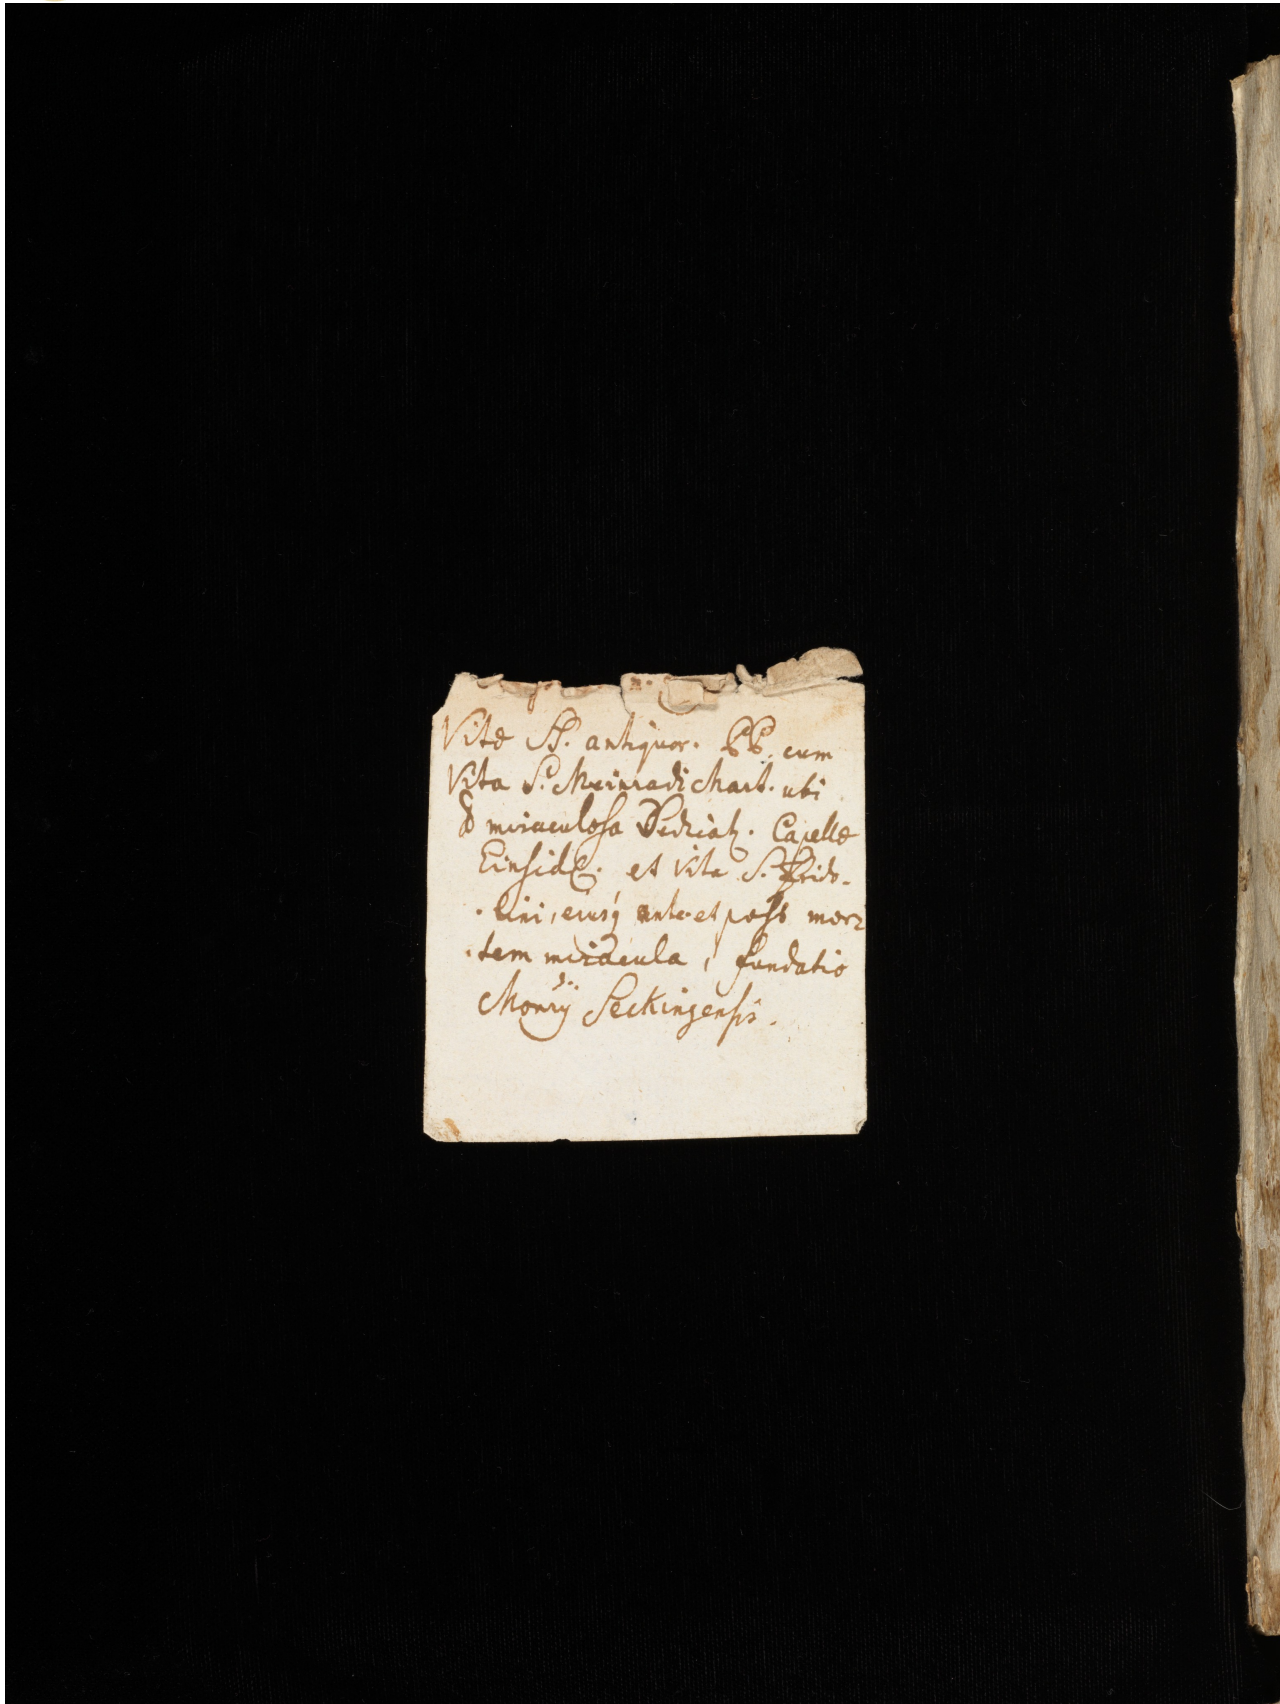 Vitæ SS. antiquor. PP. cum
Vita S. Meinradi Mart. ubi
& miraculosa Dedicat. Capellæ
Einsidl. et Vita S. Frido-
-lini, eiusq ante et post mor-
-tem miracula, fundatio
Monrij Seckingensis.